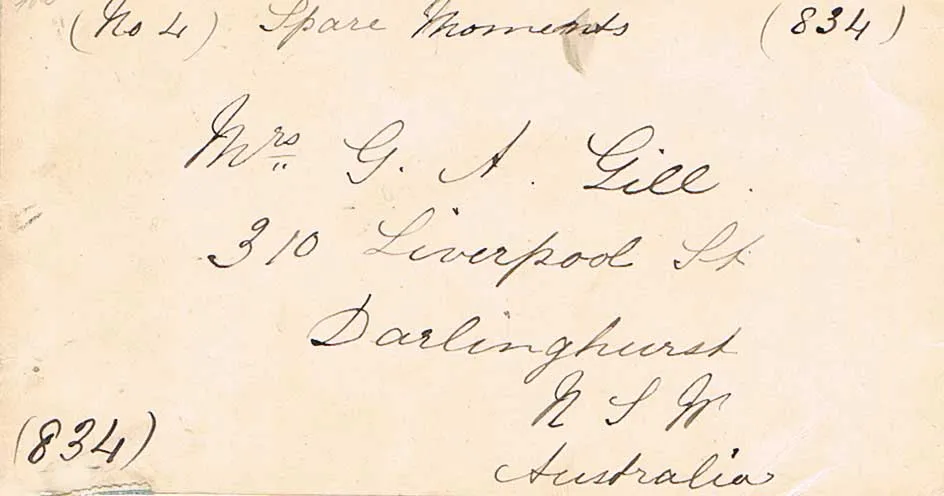 (No 4) Spare Moments (834)
Mrs G. A. Gill.
310 Liverpool St
Darlinghurst
N S W
Australia
(834)